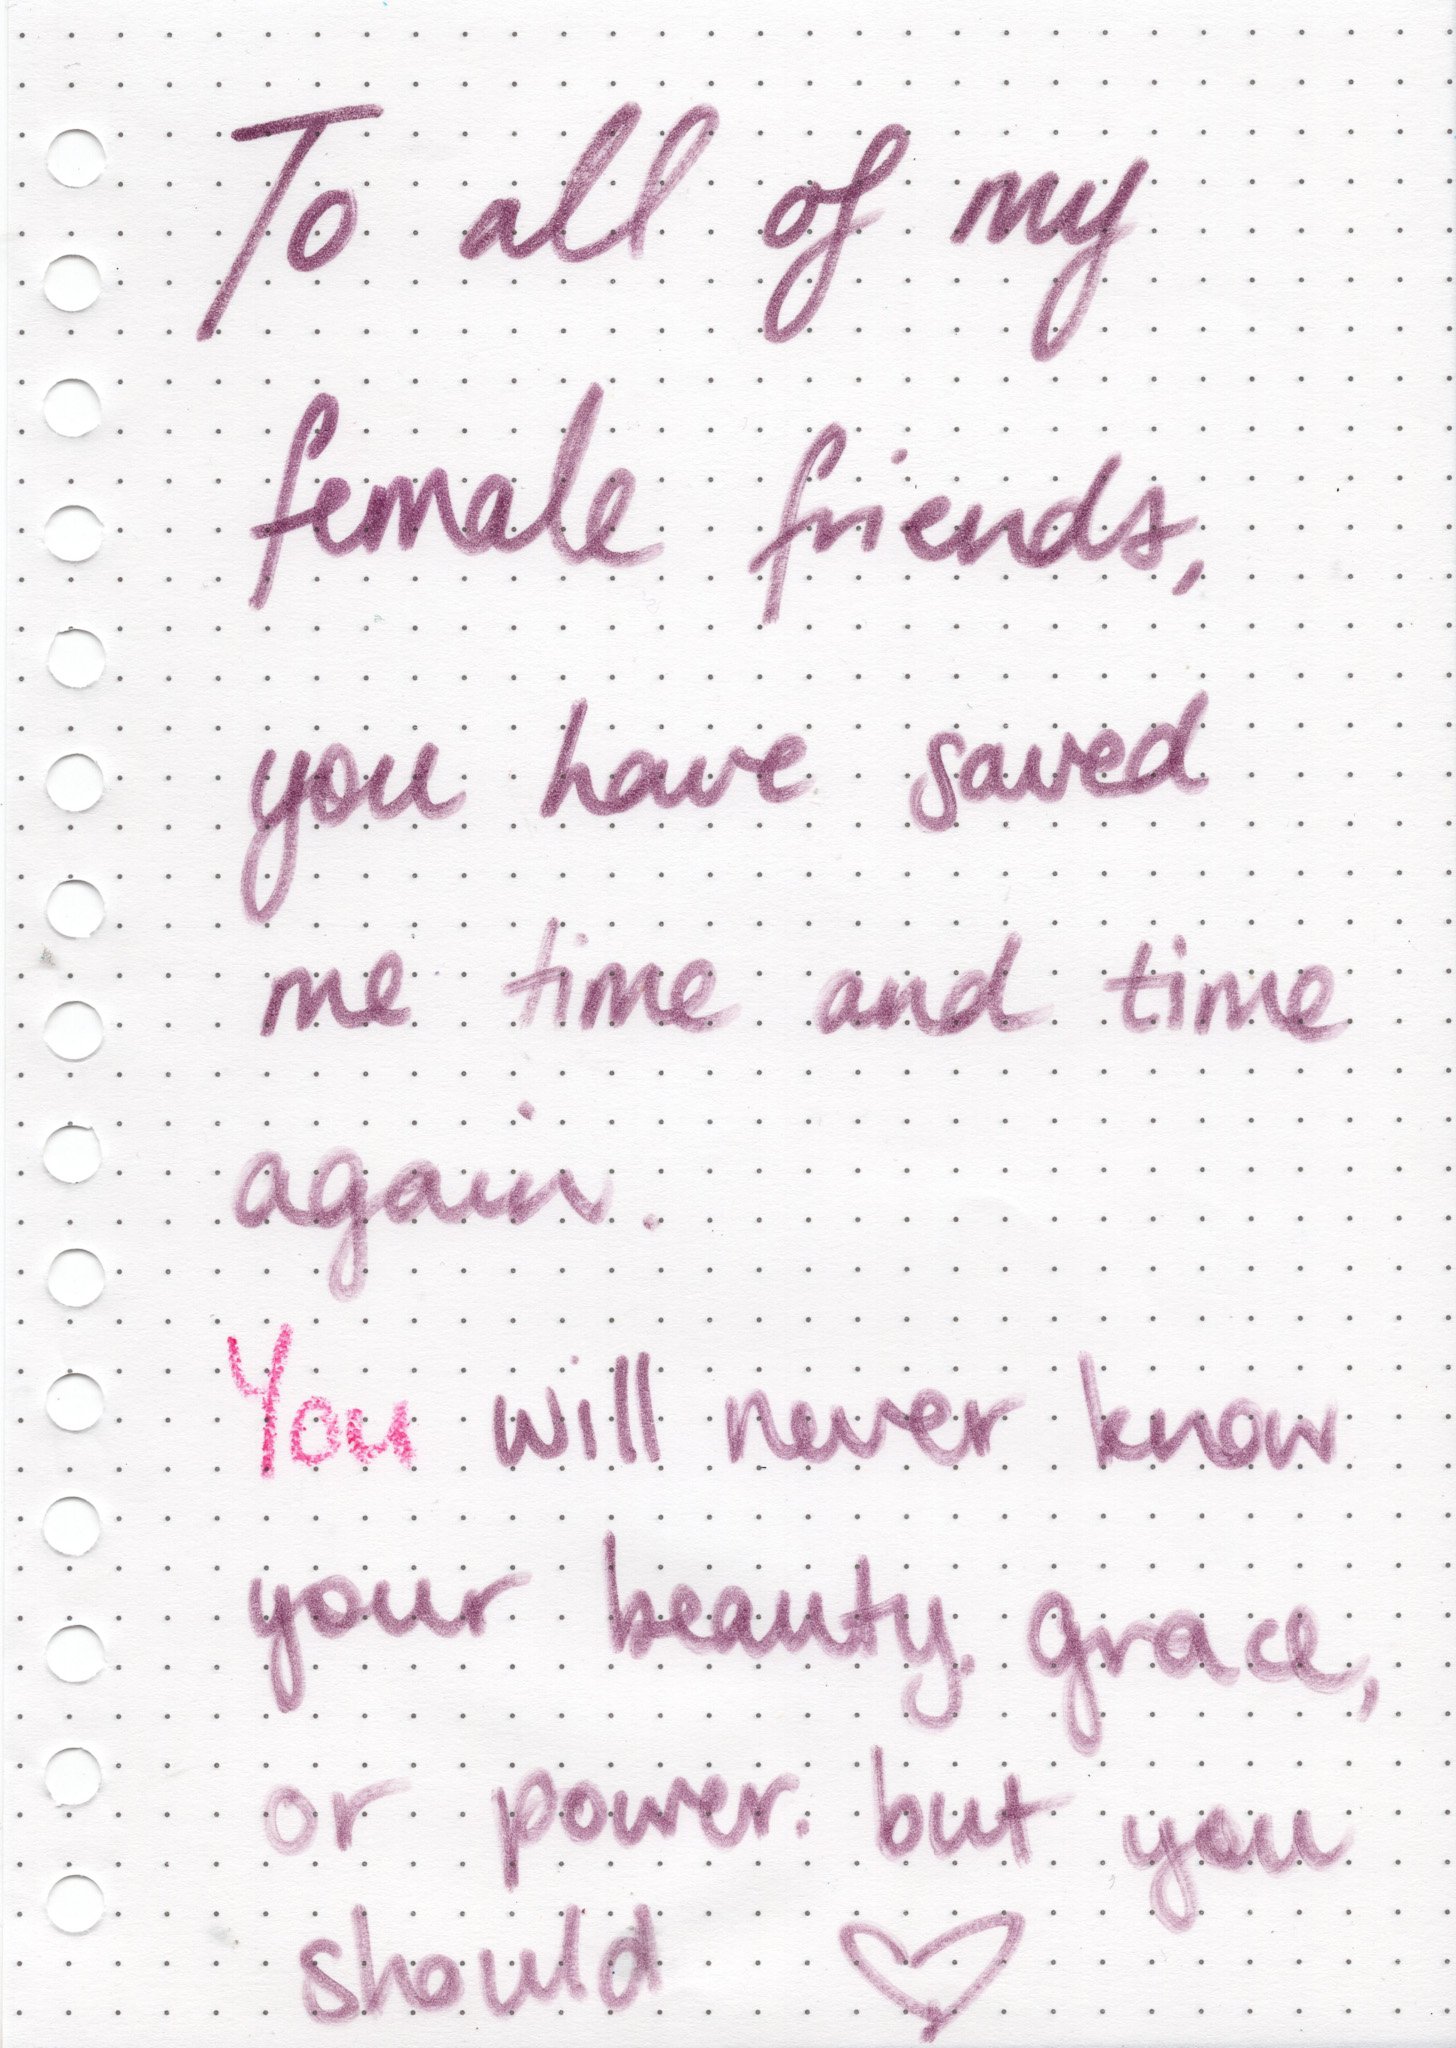 To all of my
female friends,
you have saved
me time and time
again.
You will never know
your beauty. grace,
or power. but you
should